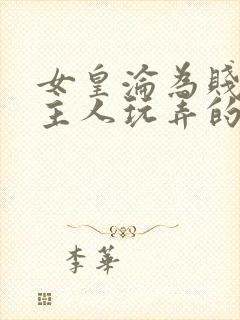 女皇淪為賤
主人玩弄的
李華